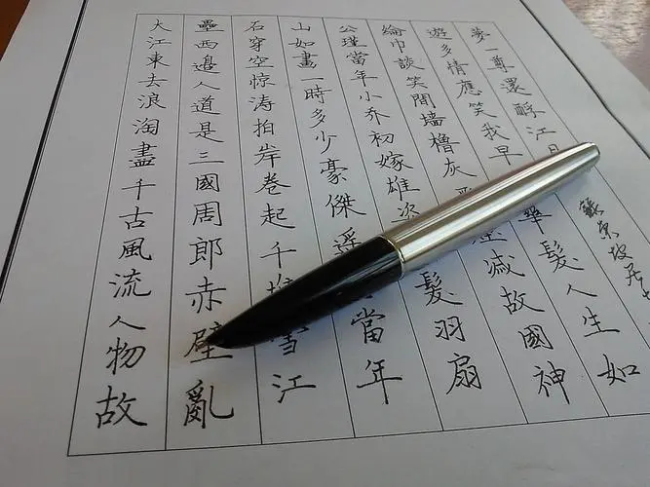 大江東去浪淘盡千古風流人物故
壘西邊人道是三國周郎赤壁亂
石穿空惊涛拍岸卷起千堆雪江
山如畫一時多少豪傑遥當年
公瑾當年小乔初嫁雄姿髮羽扇
綸巾談笑間墙櫓灰减故國神
遊多情應笑我早華髮人生如
夢一尊還酹江月
蘇東坡居